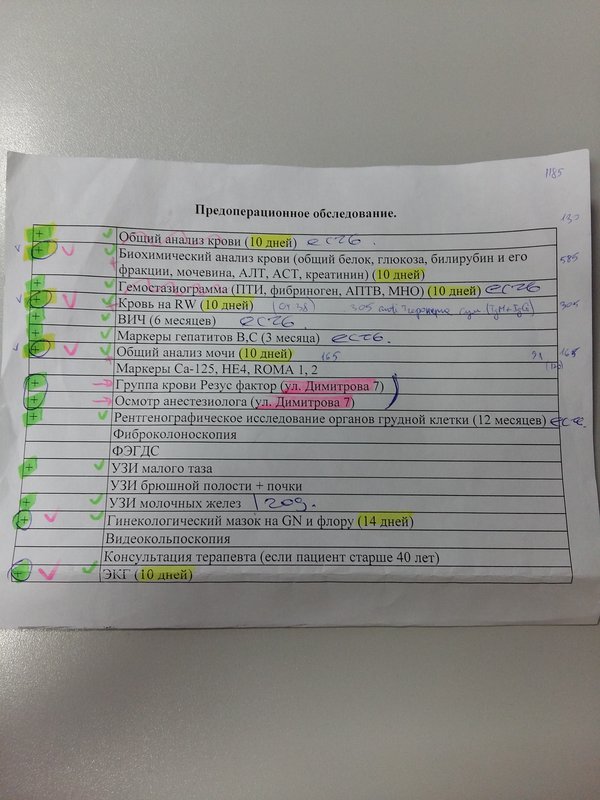 1185
Предоперационное обследование.
130
+ Общий анализ крови (10 дней) есть.
+ Биохимический анализ крови (общий белок, глюкоза, билирубин и его 585
фракции, мочевина, АЛТ, АСТ, креатинин) (10 дней)
+ Гемостазиограмма (ПТИ, фибриноген, АПТВ, МНО) (10 дней) есть
+ Кровь на RW (10 дней) 305 сум (IgM+IgG) 305
+ ВИЧ (6 месяцев) есть
+ Маркеры гепатитов В,С (3 месяца) есть.
+ Общий анализ мочи (10 дней) 165 165
Маркеры Са-125, НЕ4, ROMA 1, 2
+ Группа крови Резус фактор (ул. Димитрова 7)
+ Осмотр анестезиолога (ул. Димитрова 7)
+ Рентгенографическое исследование органов грудной клетки (12 месяцев) есть
Фиброколоноскопия
ФЭГДС
+ УЗИ малого таза
УЗИ брюшной полости + почки
+ УЗИ молочных желез 1 год.
+ Гинекологический мазок на GN и флору (14 дней)
Видеокольпоскопия
Консультация терапевта (если пациент старше 40 лет)
+ ЭКГ (10 дней)